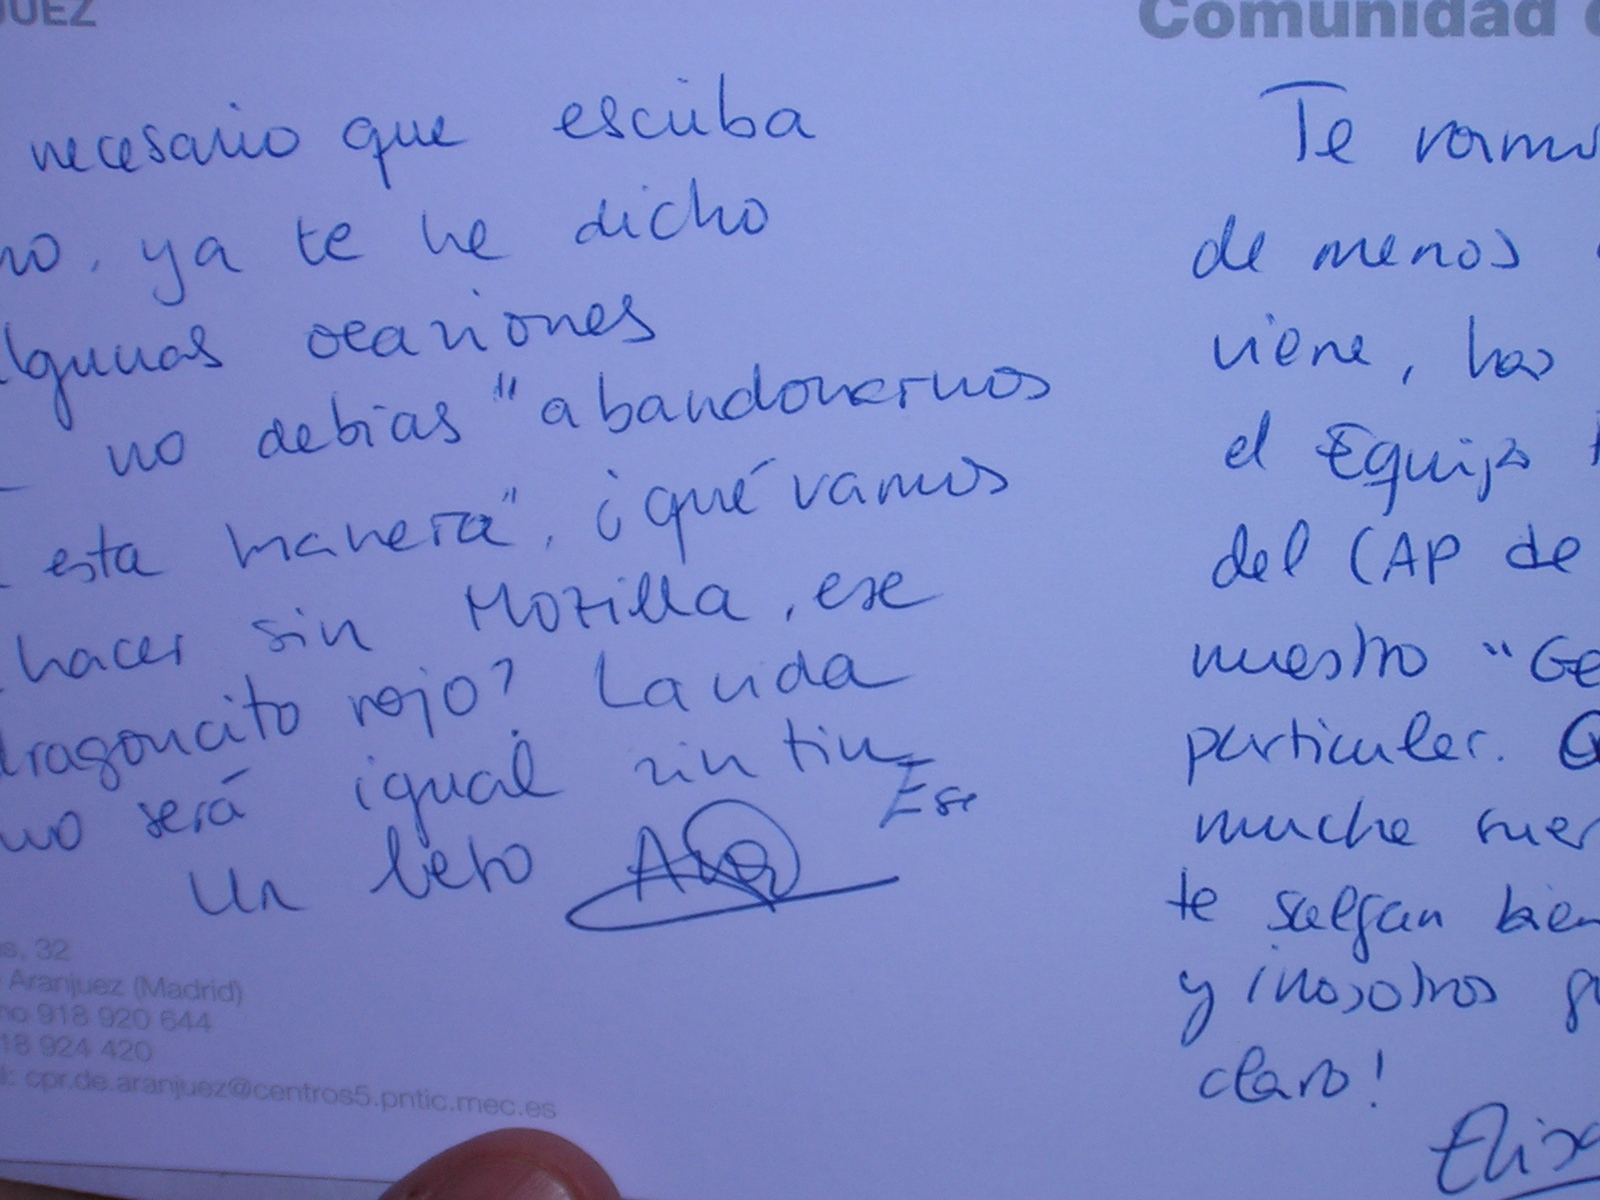 JUEZ
Comunidad
necesario que escriba
no, ya te he dicho
algunas ocasiones
no debias "abandonarnos
esta manera", ¿qué vamos
hacer sin Mozilla, ese
dragoncito rojo?
no será igual sin ti
Un beso Ana
s, 32
Aranjuez (Madrid)
no 918 920 644
18 924 420
l: cpr.de.aranjuez@centros5.pntic.mec.es
Te vamos
de menos
viene, has
el Equipo
del CAP de
nuestro "Ge
particular.
mucha suer
te salgan bien
y ¡nosotros
claro!
Elisa